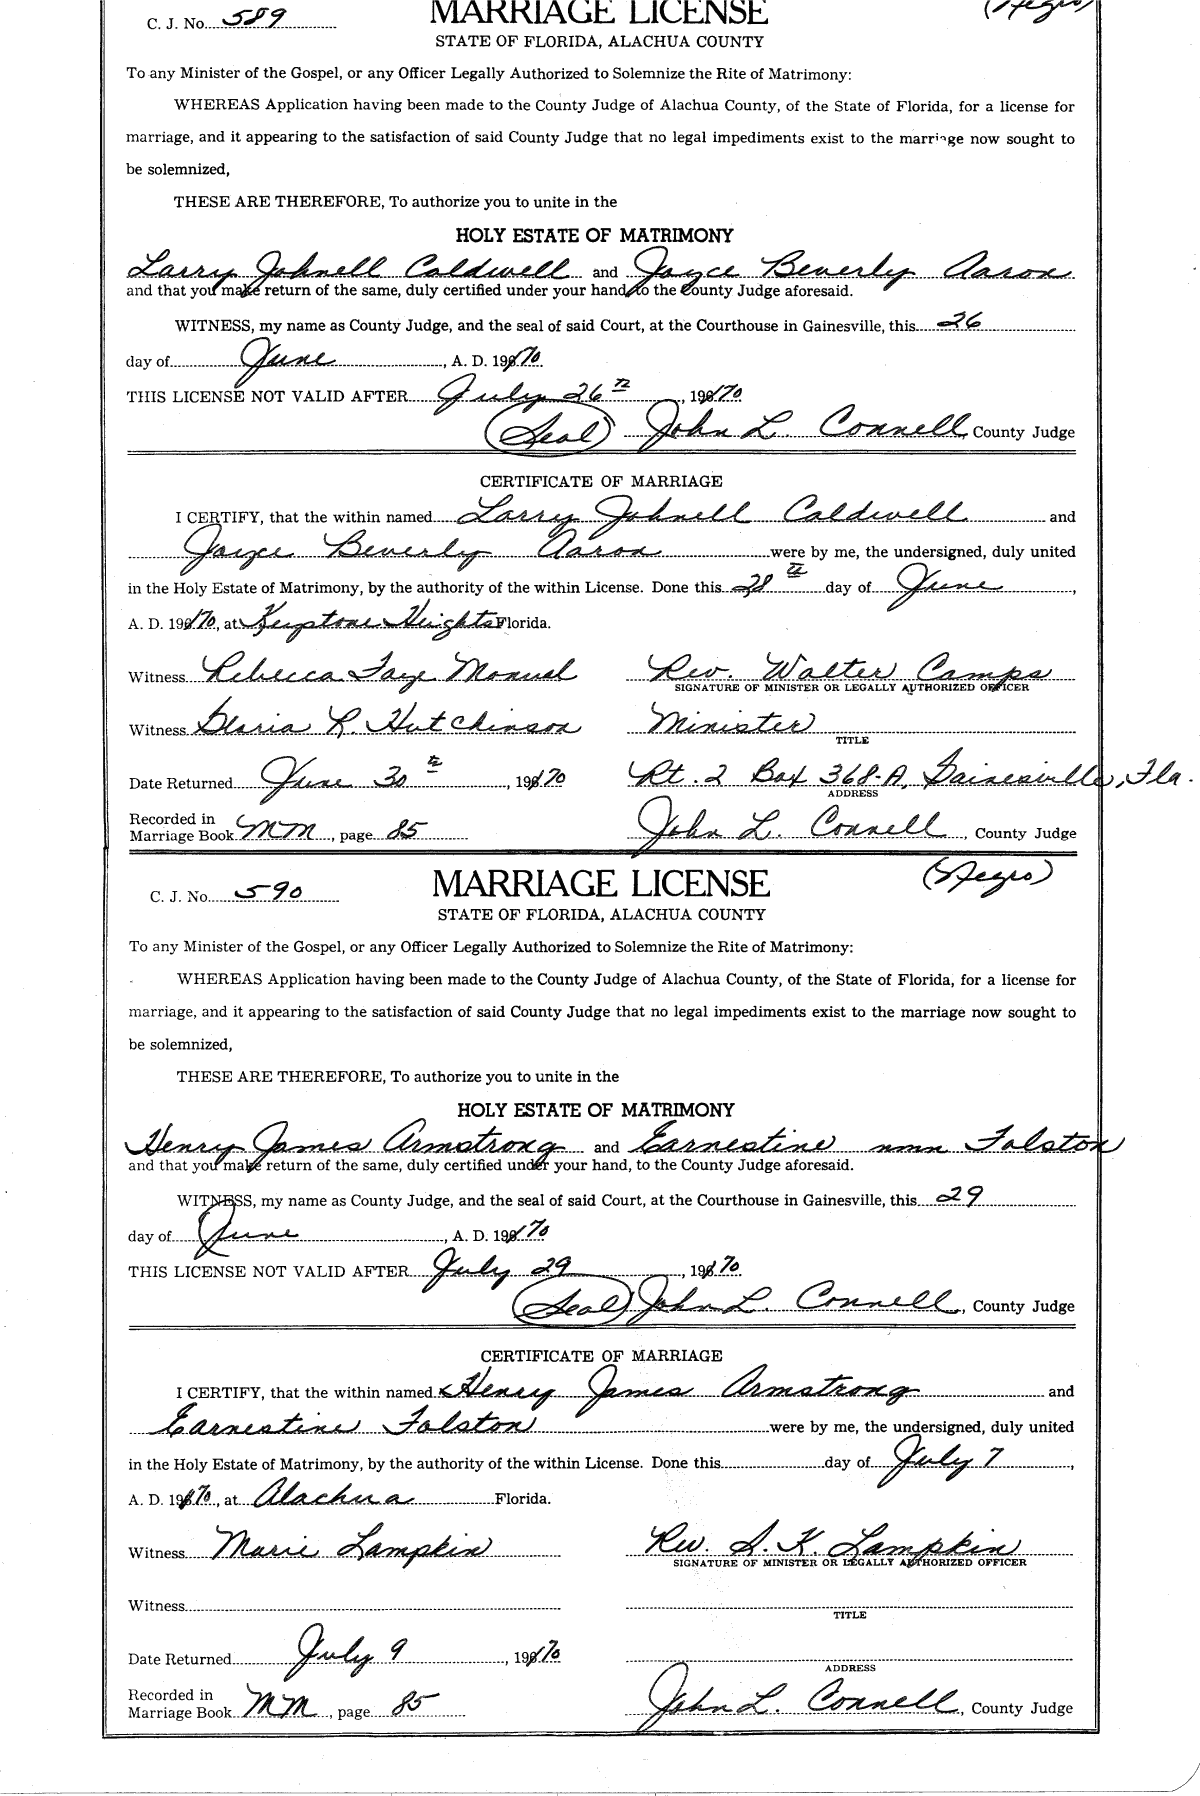 C. J. No. 589 MARRIAGE LICENSE (Negro)
STATE OF FLORIDA, ALACHUA COUNTY
To any Minister of the Gospel, or any Officer Legally Authorized to Solemnize the Rite of Matrimony:
WHEREAS Application having been made to the County Judge of Alachua County, of the State of Florida, for a license for
marriage, and it appearing to the satisfaction of said County Judge that no legal impediments exist to the marriage now sought to
be solemnized,
THESE ARE THEREFORE, To authorize you to unite in the
HOLY ESTATE OF MATRIMONY
Larry Johnell Caldwell and Joyce Beverly Aaron
and that you make return of the same, duly certified under your hand, to the County Judge aforesaid.
WITNESS, my name as County Judge, and the seal of said Court, at the Courthouse in Gainesville, this 26
day of June, A. D. 1970
THIS LICENSE NOT VALID AFTER July 26th, 1970
(Seal) John L. Connell County Judge
CERTIFICATE OF MARRIAGE
I CERTIFY, that the within named Larry Johnell Caldwell and
Joyce Beverly Aaron were by me, the undersigned, duly united
in the Holy Estate of Matrimony, by the authority of the within License. Done this 28th day of June,
A. D. 1970, at Keystone Heights Florida.
Witness Rebecca Faye Manuel Rev. Walter Camps
SIGNATURE OF MINISTER OR LEGALLY AUTHORIZED OFFICER
Witness Gloria R. Hutchinson Minister
TITLE
Date Returned June 30th, 1970 Rt. 2 Box 368-A, Gainesville, Fla.
ADDRESS
Recorded in
Marriage Book MM, page 85 John L. Connell, County Judge
C. J. No. 590 MARRIAGE LICENSE (Negro)
STATE OF FLORIDA, ALACHUA COUNTY
To any Minister of the Gospel, or any Officer Legally Authorized to Solemnize the Rite of Matrimony:
WHEREAS Application having been made to the County Judge of Alachua County, of the State of Florida, for a license for
marriage, and it appearing to the satisfaction of said County Judge that no legal impediments exist to the marriage now sought to
be solemnized,
THESE ARE THEREFORE, To authorize you to unite in the
HOLY ESTATE OF MATRIMONY
Henry James Armstrong and Earnestine nmn Folston
and that you make return of the same, duly certified under your hand, to the County Judge aforesaid.
WITNESS, my name as County Judge, and the seal of said Court, at the Courthouse in Gainesville, this 29
day of June, A. D. 1970
THIS LICENSE NOT VALID AFTER July 29, 1970
(Seal) John L. Connell, County Judge
CERTIFICATE OF MARRIAGE
I CERTIFY, that the within named Henry James Armstrong and
Earnestine Folston were by me, the undersigned, duly united
in the Holy Estate of Matrimony, by the authority of the within License. Done this day of July 7,
A. D. 1970, at Alachua Florida.
Witness Marie Lampkin Rev. S. K. Lampkin
SIGNATURE OF MINISTER OR LEGALLY AUTHORIZED OFFICER
Witness
TITLE
Date Returned July 9, 1970
ADDRESS
Recorded in
Marriage Book MM, page 85 John L. Connell, County Judge